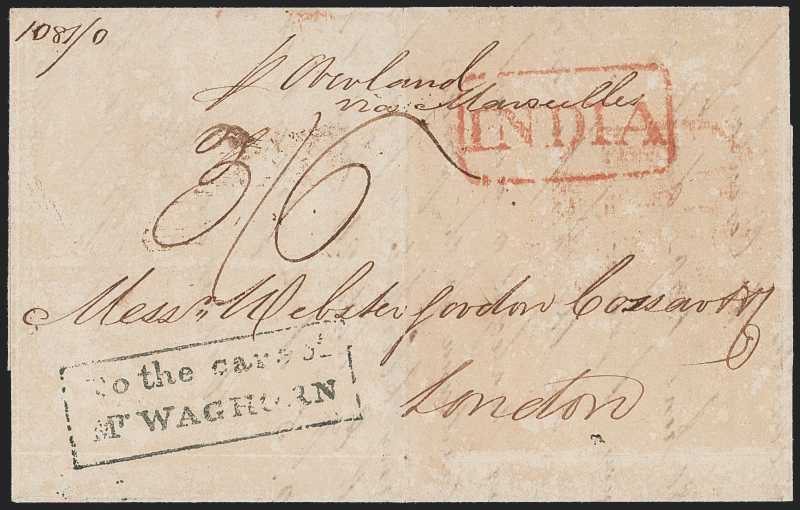 1081/0
p Overland
via Marseilles
INDIA
3/6
Messrs Webster Gordon Cossart
London
To the care of
Mr WAGHORN